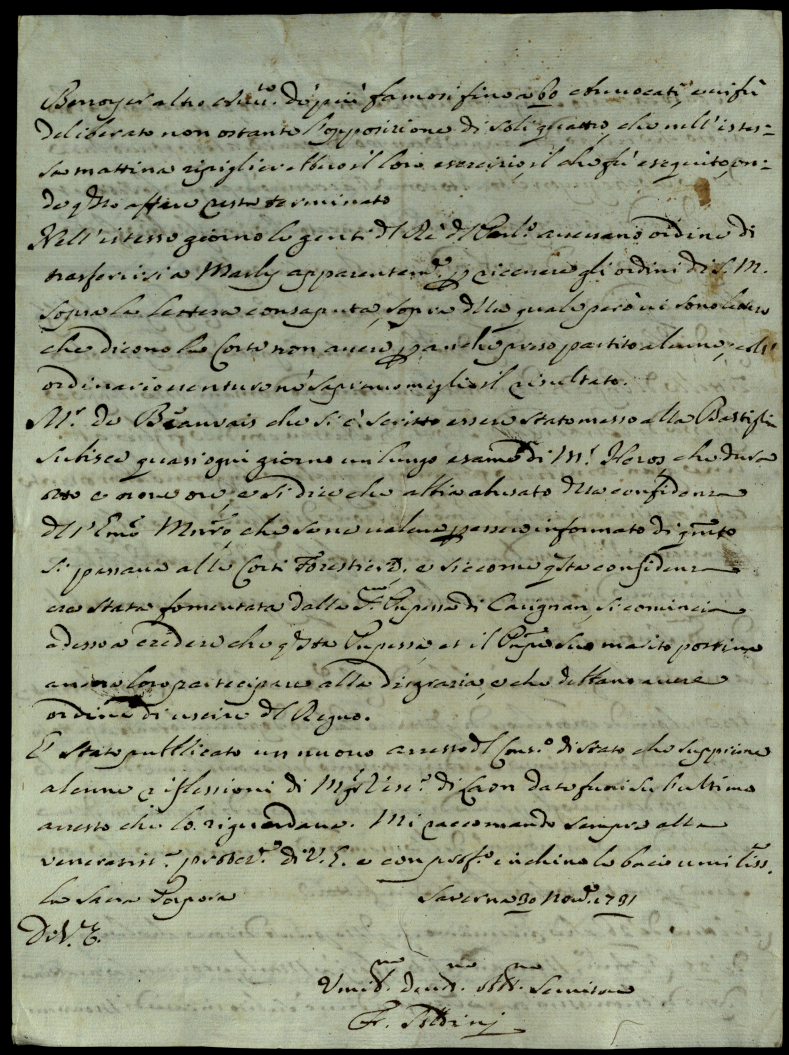 Berroyer altro de' più famosi fino a 60 convocati, e vi fù
deliberato non ostante l'opposizione di soli quattro, che nell'istes=
sa mattina ripigliarebbero il loro esercizio, il che fù eseguito, on=
de q̃sto affare resta terminato
Nell'istesso giorno le genti dl Rè dl Parl.º avevano ordine di
trasferirsi a Marly apparentem.e p ricevere gli ordini di S. M.
sopra la lettera consaputa, sopra dlla quale però vi sono lettere
che dicono la Corte non avere p anche preso partito alcuno, coll'
ordinario venturo nè sapremo meglio il risultato.
M.r de Beauvais che si è scritto essere stato messo alla Bastiglia
subisce quasi ogni giorno un lungo esame di M.r Heros, che dura
otto e nove ore, e si dice che abbia abusato dlla confidenza
dll' Emo Mnro, che se ne valeva p essere informato di q̃nto
si passava alle Corti Forestiere, e siccome q̃sta confidenza
era stata fomentata dalla Pnpessa di Carignan, si comincia
adesso a credere che q̃sta Pnpessa, et il Pnpe suo marito possino
ancora loro partecipare alla disgrazia, e che debbano avere
ordine di uscire dl Regno.
E' stato pubblicato un nuovo arresto dl Cons.º di Stato che supprime
alcune riflessioni di Mgr Vesc.º di Laon date fuori su l'ultimo
arresto che lo riguardava. Mi raccomando sempre alla
veneratis.ma protez.ne di V. E. e con prof.º inchino le bacio umiliss.
la Sacra Porpora Saverna 30 Nov.e 1731
Di V. E.
Umil.mo Dev.mo Obb.mo Servitore